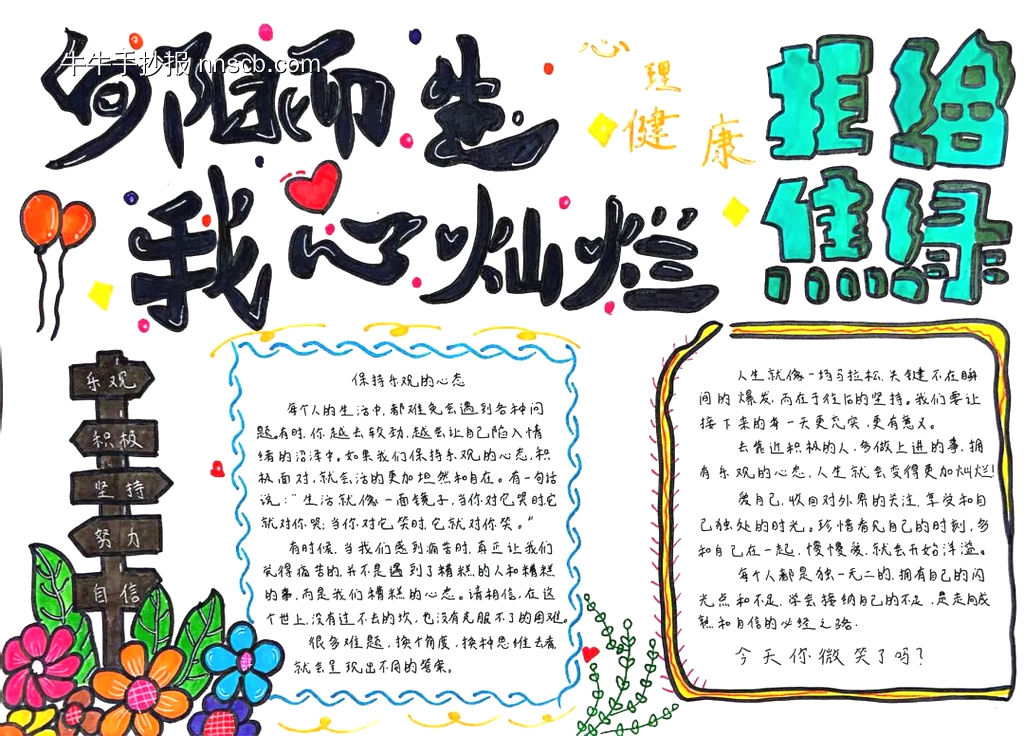 牛牛手抄报 nnscb.com
向阳而生
我心灿烂
心理健康
拒给
焦绿
乐观
积极
坚持
努力
自信
保持乐观的心态
每个人的生活中,都难免会遇到各种问
题。有时,你越去较劲,越会让自己陷入情
绪的沼泽中。如果我们保持乐观的心态,积
极面对,就会活的更加坦然和自在。有一句话
说:“生活就像一面镜子,当你对它哭时,它
就对你哭;当你对它笑时,它就对你笑。”
有时候,当我们感到痛苦时,真正让我们
觉得痛苦的,并不是遇到了糟糕的人和糟糕
的事,而是我们糟糕的心态。请相信,在这
个世上,没有过不去的坎,也没有克服不了的困难。
很多难题,换个角度,换种思维去看,
就会呈现出不同的答案。
人生就像一场马拉松,关键不在瞬
间的爆发,而在于往后的坚持。我们要让
接下来的每一天更充实,更有意义。
去靠近积极的人,多做上进的事,拥
有乐观的心态,人生就会变得更加灿烂!
爱自己,收回对外界的关注,享受和自
己独处的时光。珍惜看见自己的时刻,多
和自己在一起,慢慢爱,就会开始洋溢。
每个人都是独一无二的,拥有自己的闪
光点和不足,学会接纳自己的不足,是走向成
熟和自信的必经之路.
今天你微笑了吗?